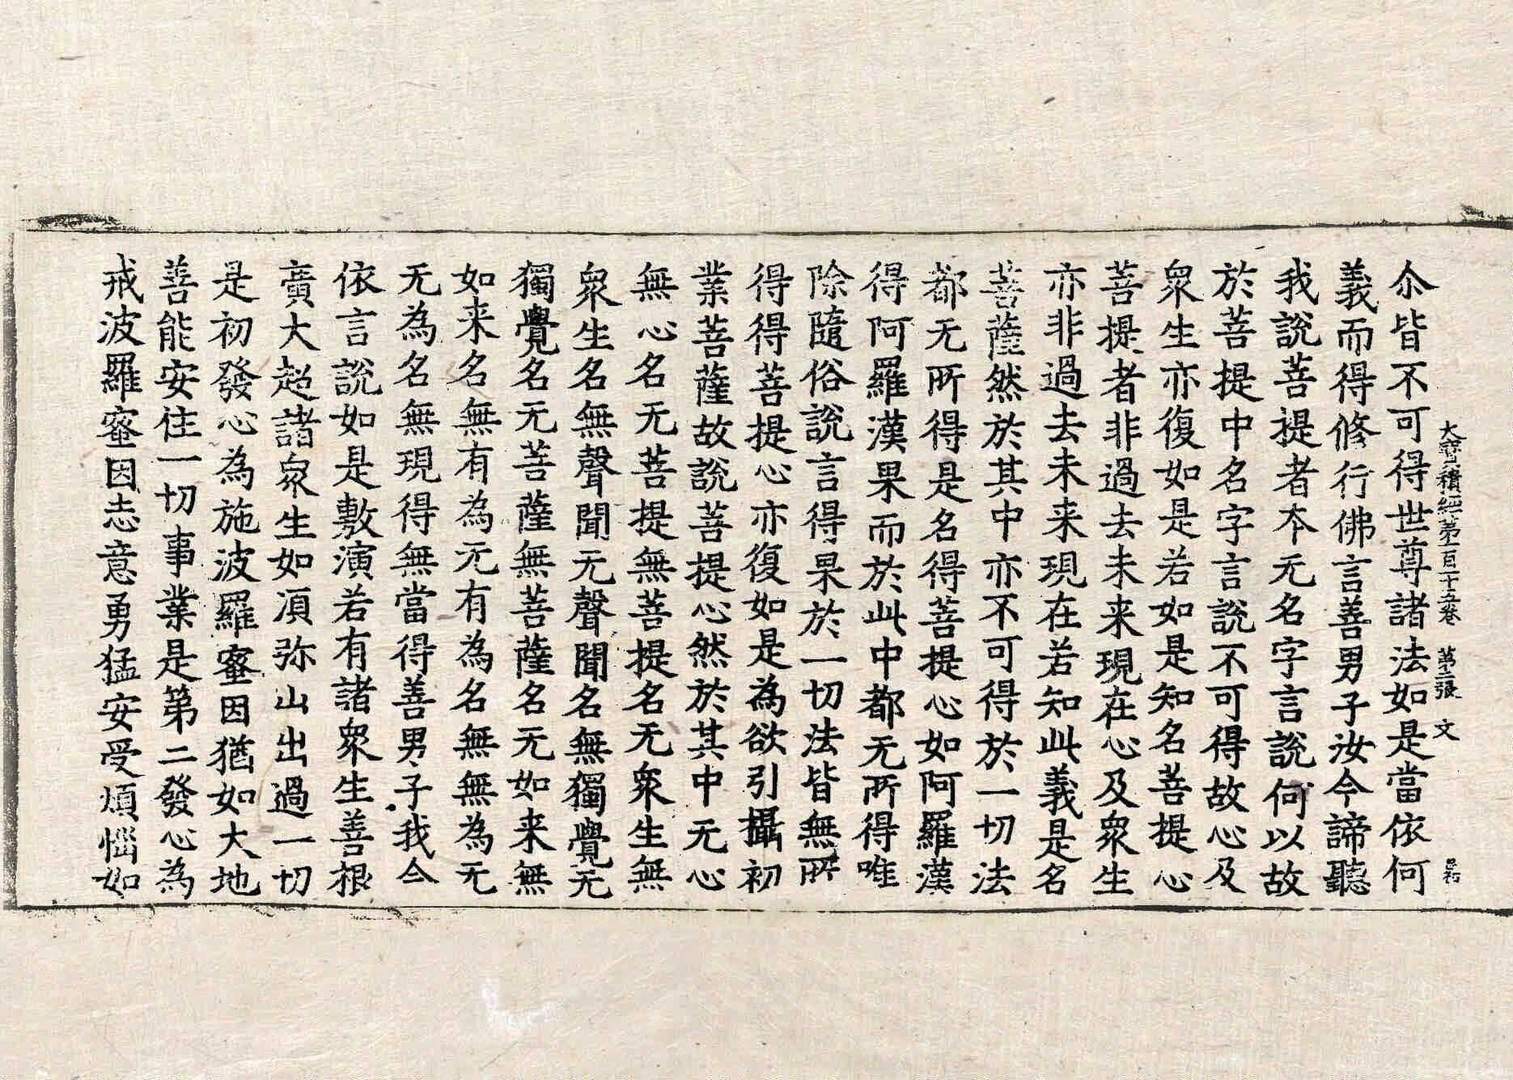 大寶積經第一百一十五卷 第三張 文
尒皆不可得世尊諸法如是當依何
義而得修行佛言善男子汝今諦聽
我說菩提者夲无名字言說何以故
於菩提中名字言說不可得故心及
衆生亦復如是若如是知名菩提心
菩提者非過去未来現在心及衆生
亦非過去未来現在若知此義是名
菩薩然於其中亦不可得於一切法
都无所得是名得菩提心如阿羅漢
得阿羅漢果而於此中都无所得唯
除隨俗說言得果於一切法皆無所
得得菩提心亦復如是為欲引攝初
業菩薩故說菩提心然於其中无心
無心名无菩提無菩提名无衆生無
衆生名無聲聞无聲聞名無獨覺无
獨覺名无菩薩無菩薩名无如来無
如来名無有為无有為名無無為无
无為名無現得無當得善男子我今
依言說如是敷演若有諸衆生善根
廣大超諸衆生如湏弥山出過一切
是初發心為施波羅蜜因猶如大地
善能安住一切事業是第二發心為
戒波羅蜜因志意勇猛安受煩惱如